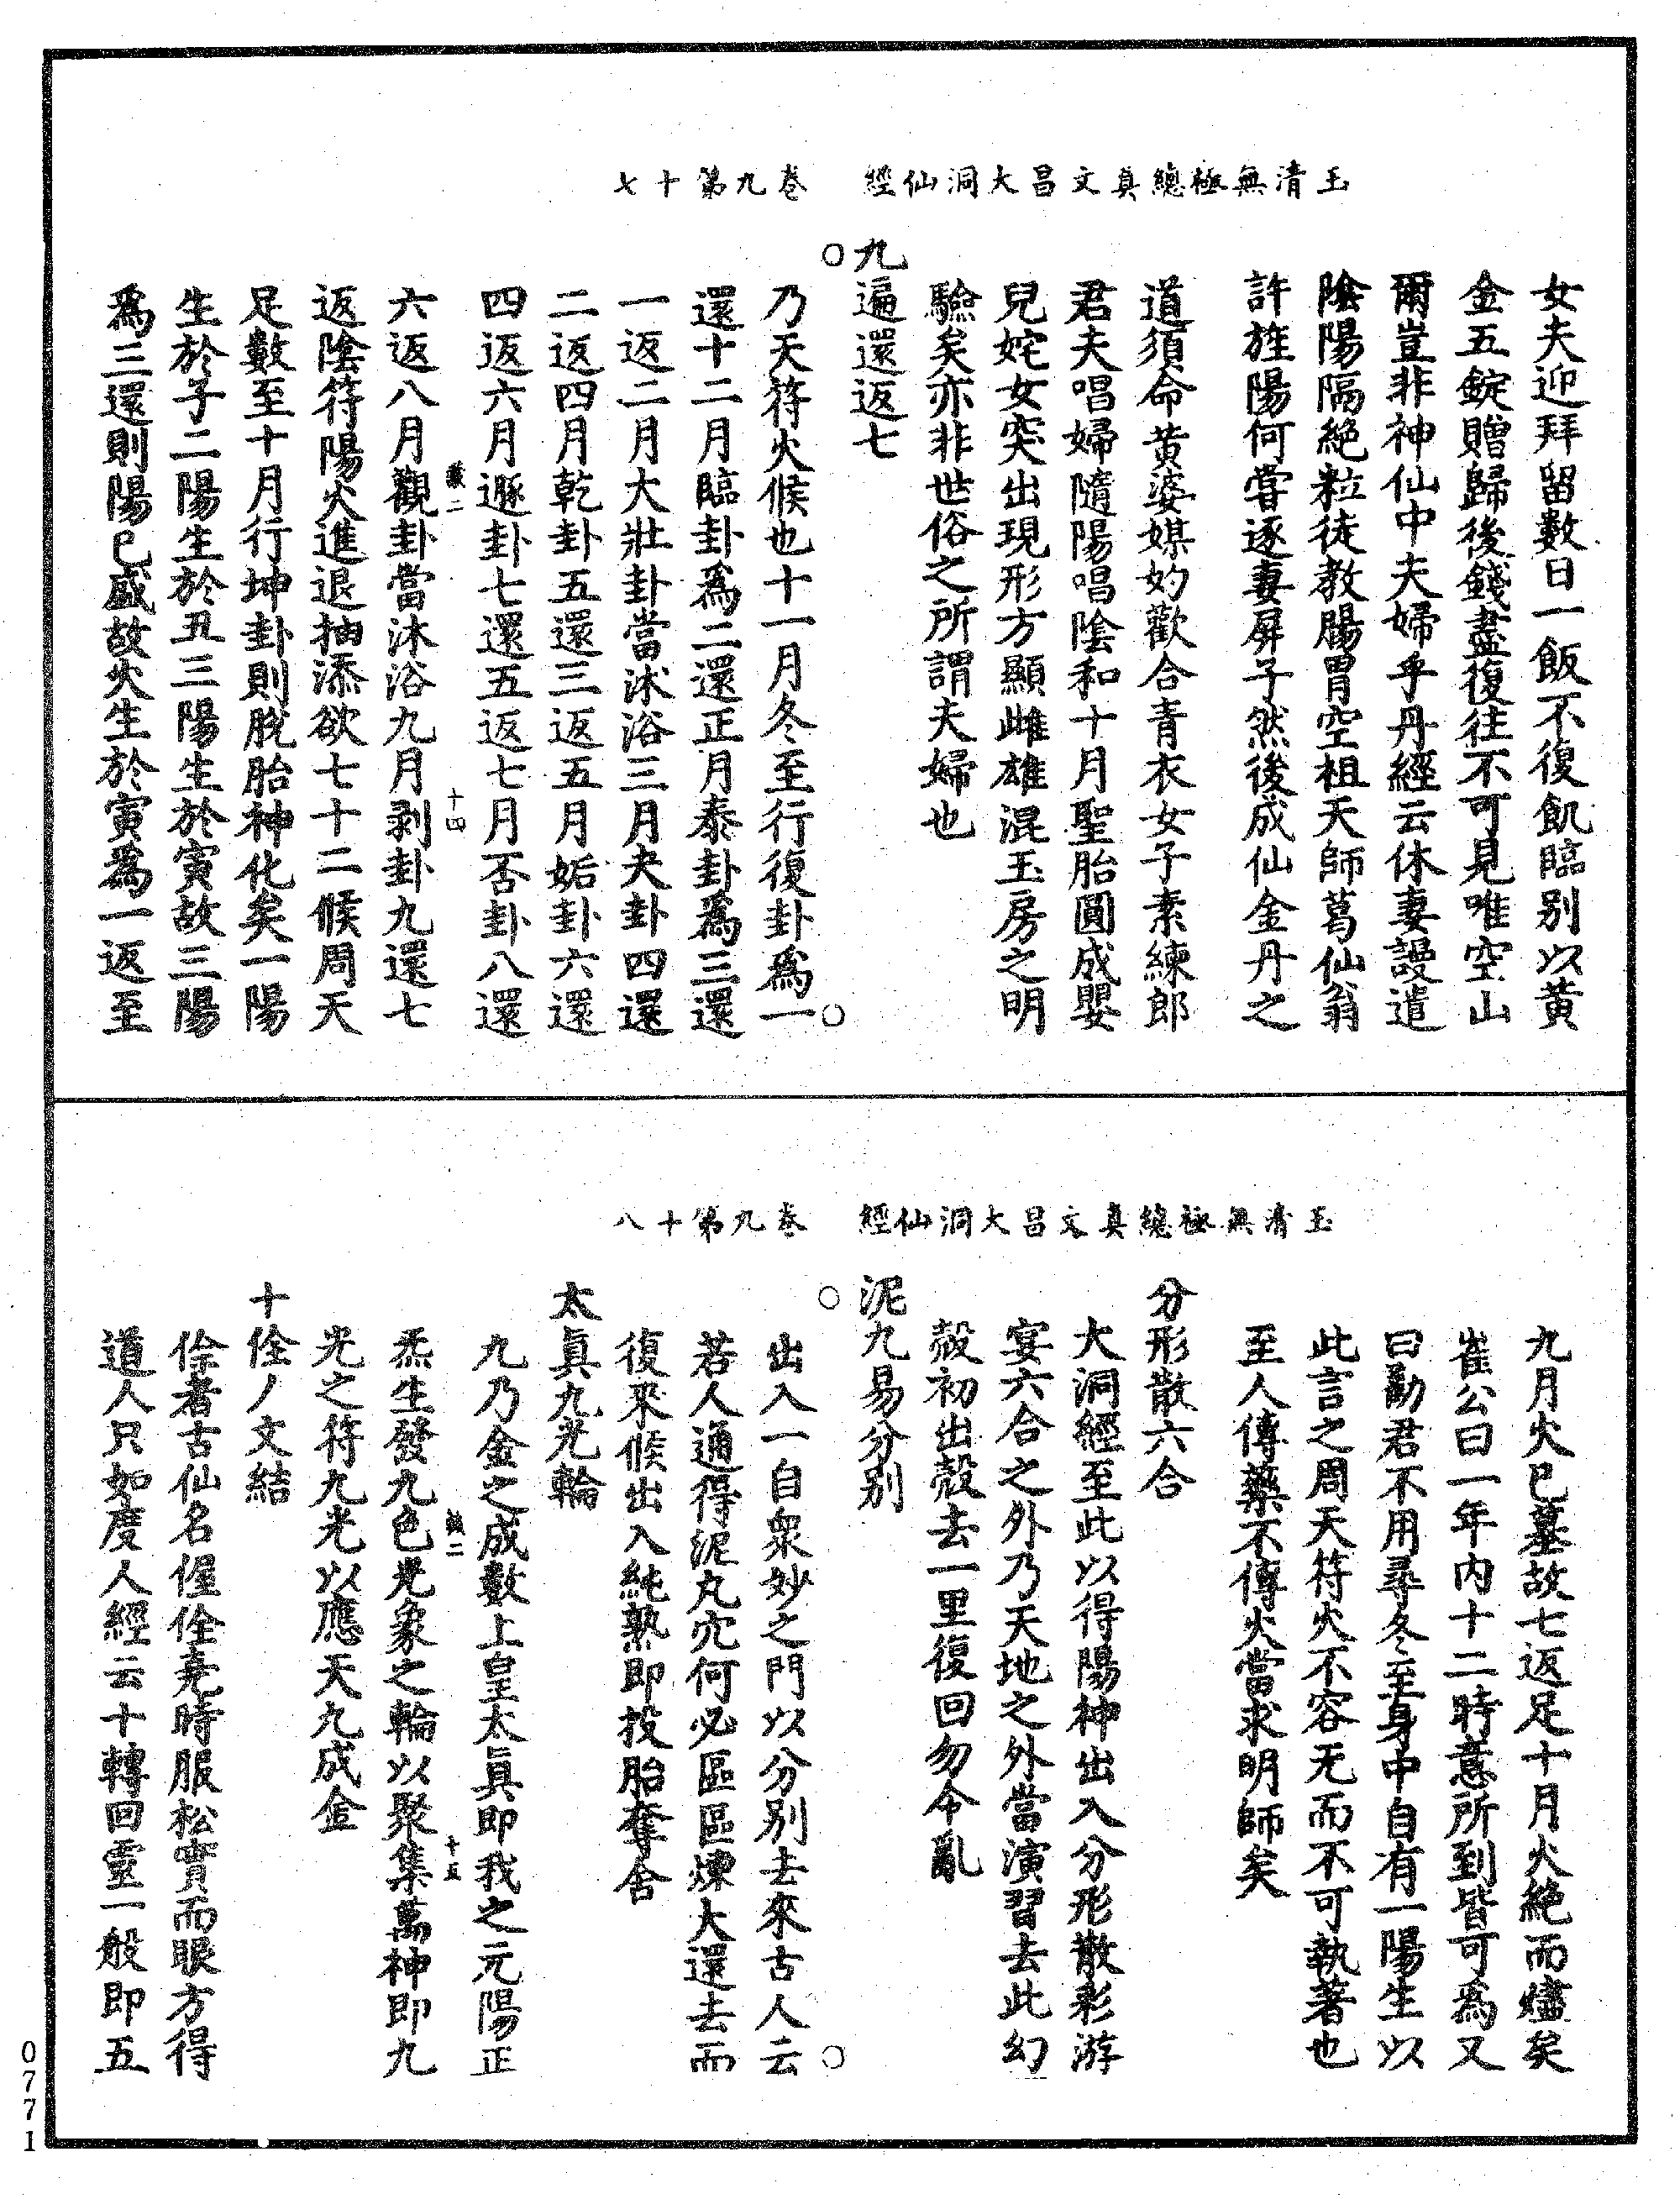 玉清無極總真文昌大洞仙經　卷九第十七
女夫迎拜留數日一飯不復飢臨別以黃
金五錠贈歸後錢盡復往不可見唯空山
爾豈非神仙中夫婦乎丹經云休妻謾遣
陰陽隔絕粒徒教腸胃空祖天師葛仙翁
許旌陽何嘗逐妻屏子然後成仙金丹之
道須命黃婆媒妁歡合青衣女子素練郎
君夫唱婦隨陽唱陰和十月聖胎圓成嬰
兒姹女突出現形方顯雌雄混玉房之明
驗矣亦非世俗之所謂夫婦也
九遍還返七
乃天符火候也十一月冬至行復卦為一
還十二月臨卦為二還正月泰卦為三還
一返二月大壯卦當沐浴三月夬卦四還
二返四月乾卦五還三返五月姤卦六還
四返六月遯卦七還五返七月否卦八還
六返八月觀卦當沐浴九月剥卦九還七
返陰符陽火進退抽添欲七十二候周天
足數至十月行坤卦則脫胎神化矣一陽
生於子二陽生於丑三陽生於寅故三陽
為三還則陽已盛故火生於寅為一返至
十四
玉清無極總真文昌大洞仙經　卷九第十八
九月火已墓故七返足十月火絕而燼矣
崔公曰一年内十二時意所到皆可為又
曰勸君不用尋冬至身中自有一陽生以
此言之周天符火不容无而不可執著也
至人傳藥不傳火當求明師矣
分形散六合
大洞經至此以得陽神出入分形散彩游
宴六合之外乃天地之外當演習去此幻
殼初出殼去一里復回勿令亂
泥九易分別
出入一自衆妙之門以分別去來古人云
若人通得泥丸穴何必區區煉大還去而
復來候出入純熟即投胎奪舍
太真九光輪
九乃金之成數上皇太真即我之元陽正
炁生發九色光象之輪以聚集萬神即九
光之符九光以應天九成金
十佺ノ文結
佺者古仙名偓佺堯時服松實而眼方得
道人只如度人經云十轉回靈一般即五
十五
0771